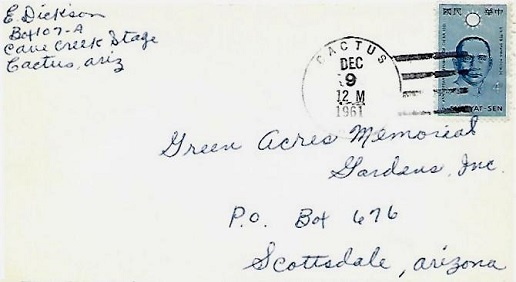 E. Dickson
Box 107-A
Cave Creek Stage
Cactus, Ariz
CACTUS
DEC
9
12 M
1961
民國 中華
YAT-SEN
4¢
Green Acres Memorial
Gardens, Inc.
P.O. Box 676
Scottsdale, Arizona